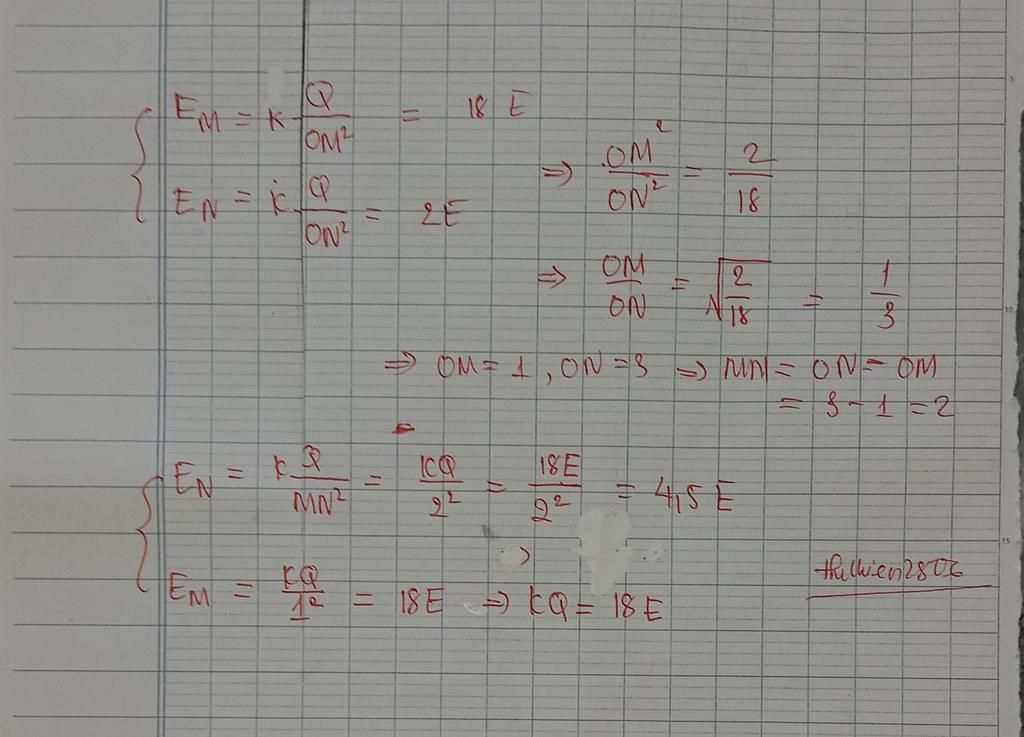 E_M = k Q/OM² = 18 E
E_N = k Q/ON² = 2E
⇒ OM²/ON² = 2/18
⇒ OM/ON = √(2/18) = 1/3
⇒ OM = 1, ON = 3 ⇒ MN = ON - OM
= 3 - 1 = 2
E_N = k Q/MN² = kQ/2² = 18E/2² = 4,5 E
E_M = kQ/1² = 18E ⇒ kQ = 18E
5
10
15